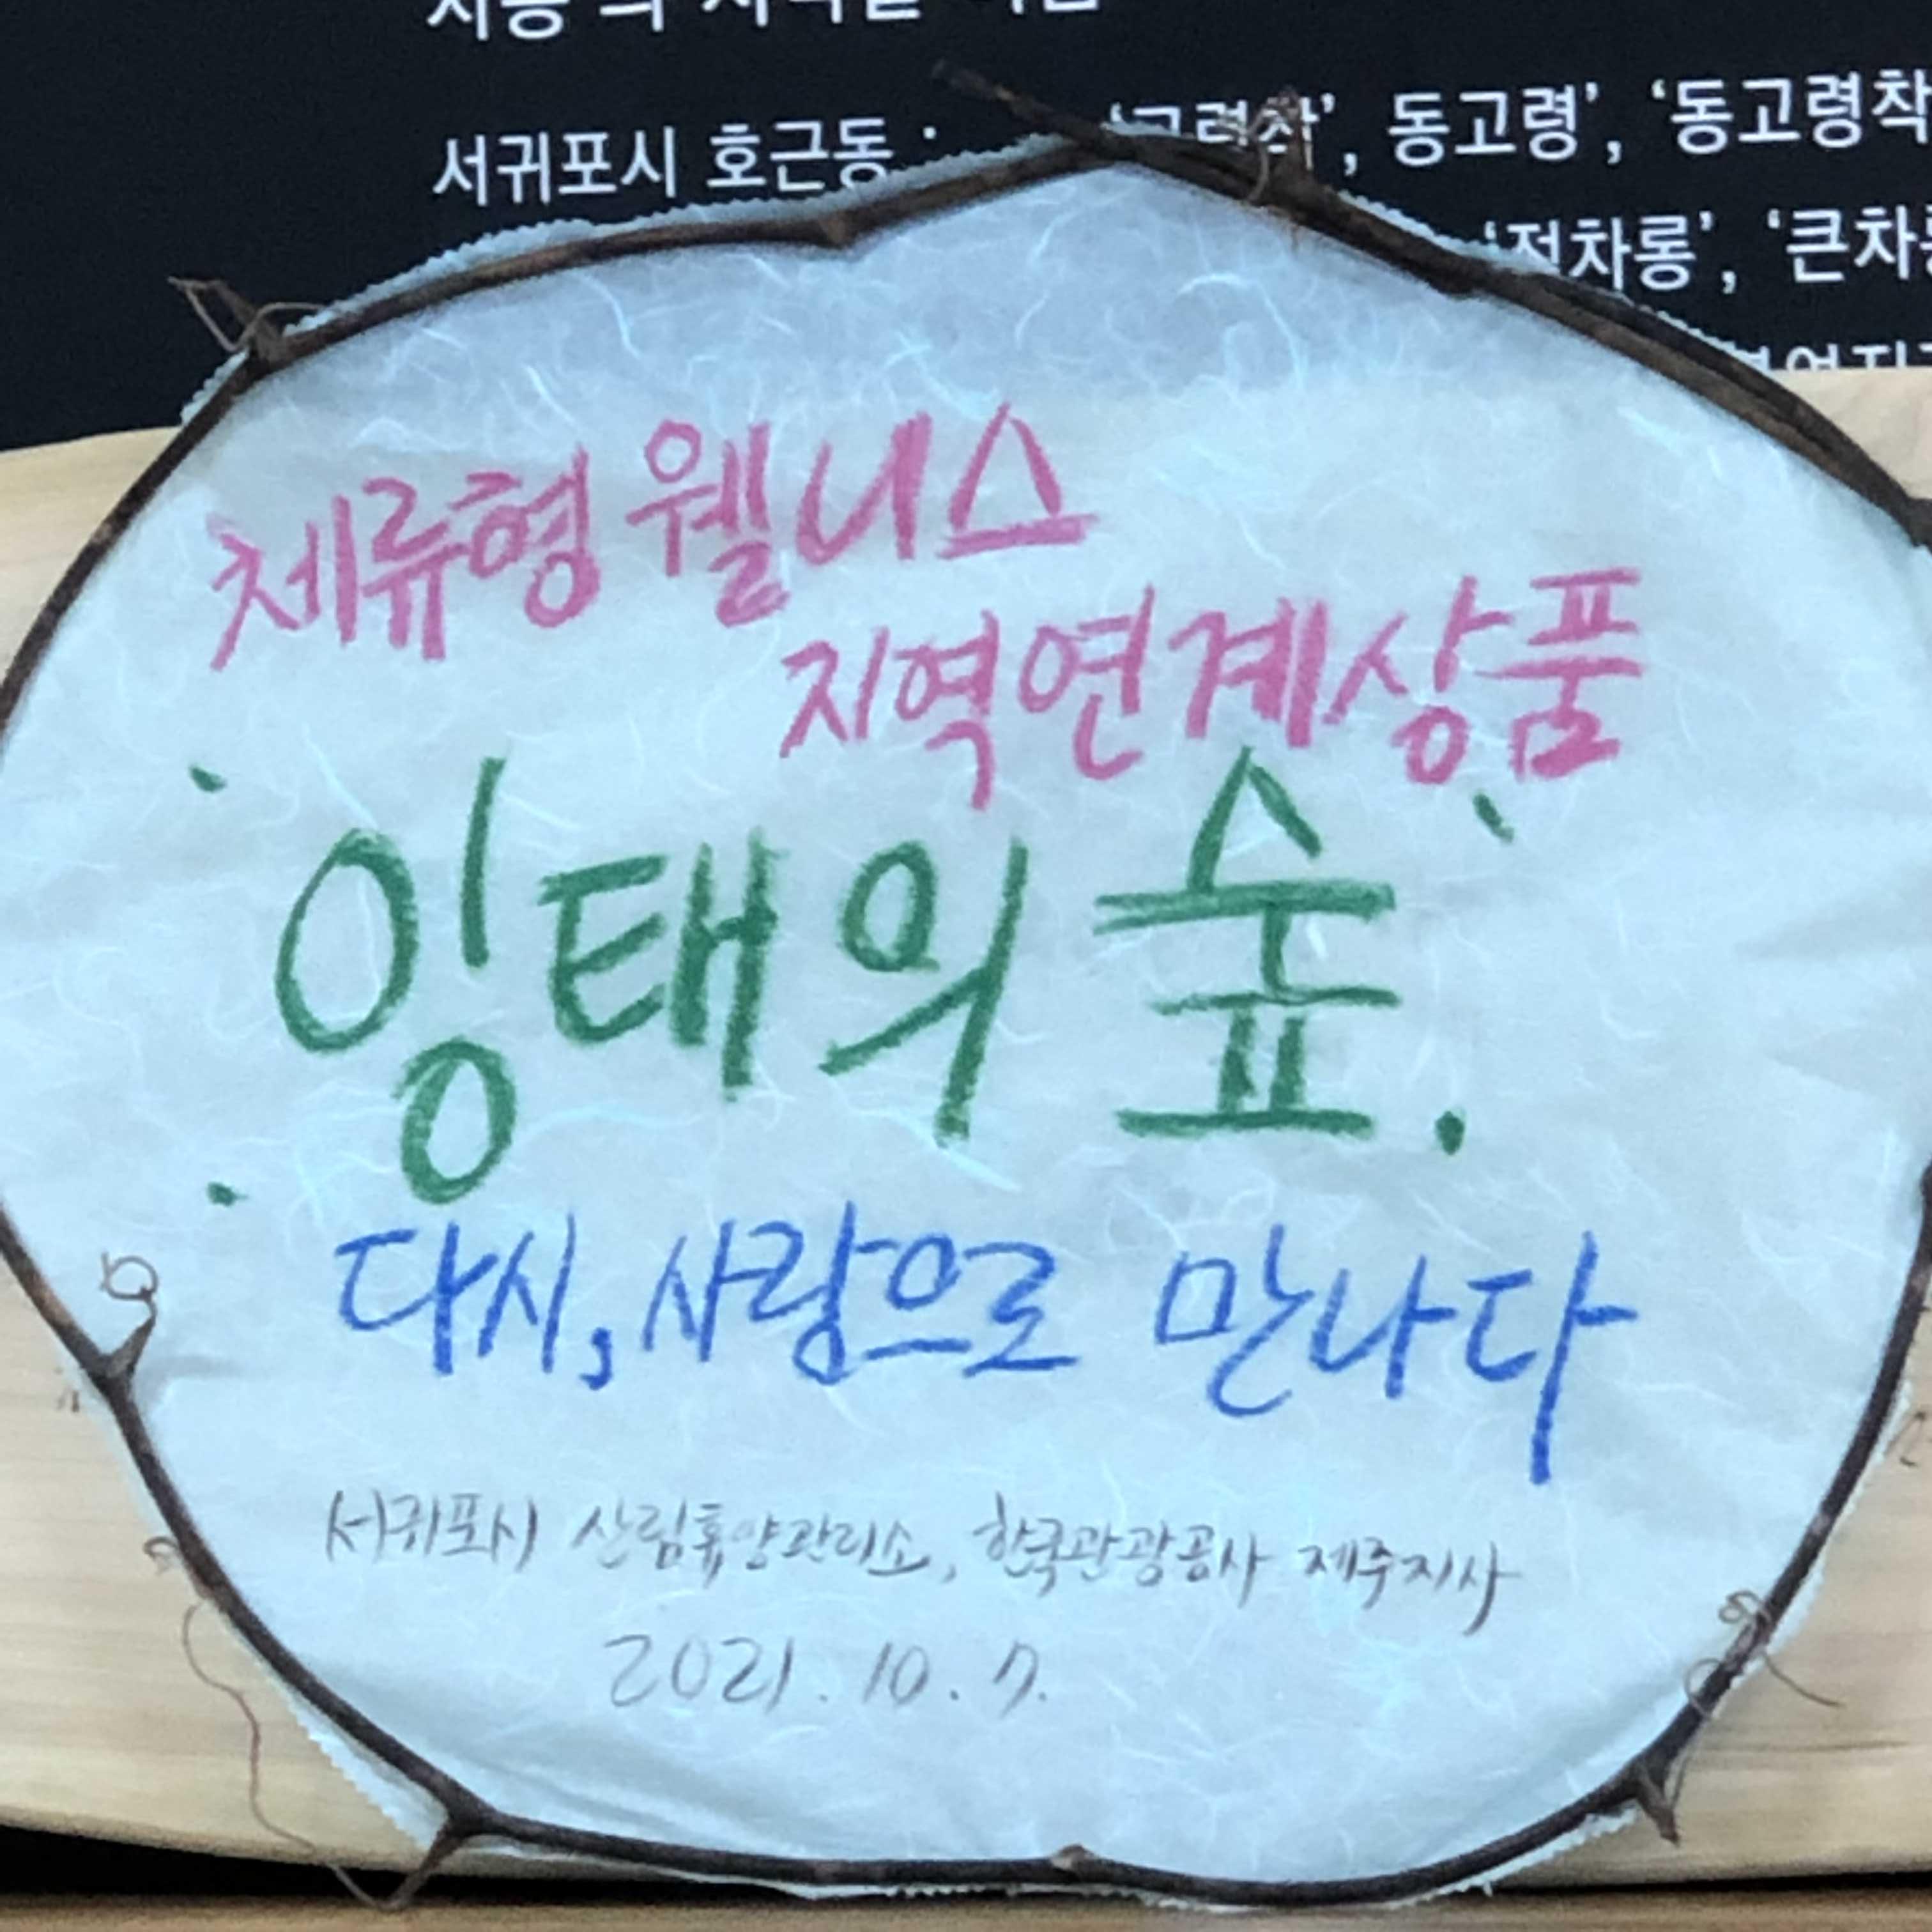 서귀포시 호근동 : '고령착', 동고령', '동고령착
'적차롱', '큰차롱
체류형 웰니스
지역연계상품
'잉태의 숲'
다시, 사랑으로 만나다
서귀포시 산림휴양관리소, 한국관광공사 제주지사
2021. 10. 7.